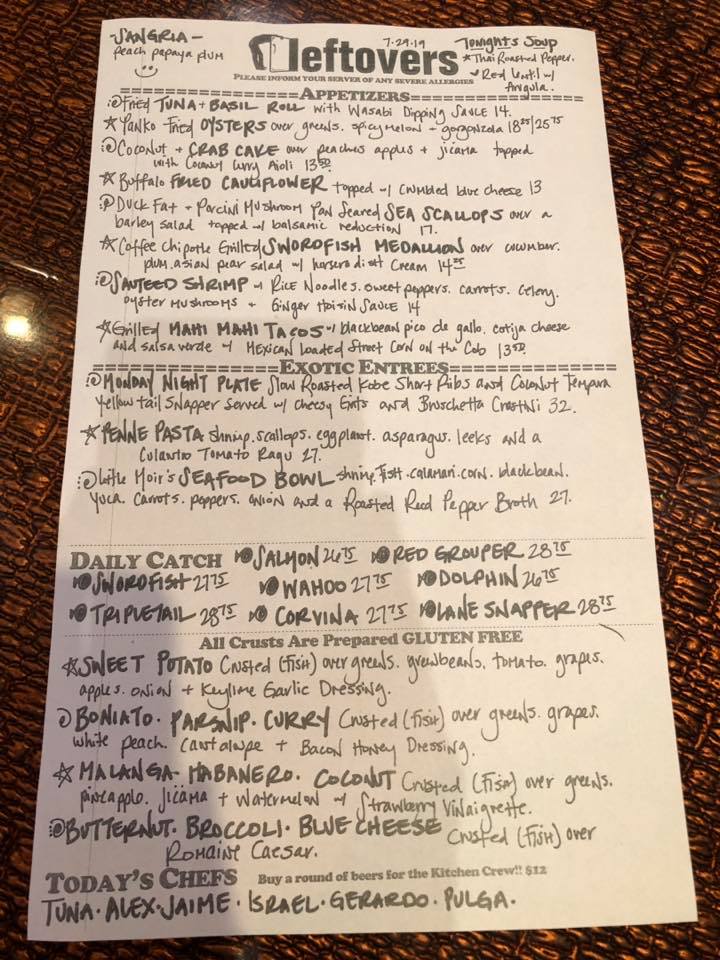 -SANGRIA-
peach papaya plum
leftovers
7.29.19
PLEASE INFORM YOUR SERVER OF ANY SEVERE ALLERGIES
TONIGHT'S SOUP
★Thai Roasted Pepper.
Red lentil w/
Arugula.
APPETIZERS
Fried TUNA + BASIL ROLL with Wasabi Dipping Sauce 14.
★Panko Fried OYSTERS over greens. spicy melon + gorgonzola 18 25/25 75
COCONUT + CRAB CAKE over peaches apples + jicama topped
with Coconut Curry Aioli 13 50
★Buffalo FRIED CAULIFLOWER topped w/ crumbled blue cheese 13
Duck Fat + Porcini Mushroom Pan Seared SEA SCALLOPS over a
barley salad topped w/ balsamic reduction 17.
★Coffee Chipotle Grilled SWORDFISH MEDALLION over cucumber.
plum. asian pear salad w/ horseradish Cream 14 25
SAUTEED SHRIMP w/ Rice Noodles. sweet peppers. carrots. celery.
oyster mushrooms + Ginger Hoisin Sauce 14
★Grilled MAHI MAHI TACOS w/ blackbean pico de gallo. cotija cheese
and salsa verde w/ Mexican loaded Street Corn on the Cob 13 50.
EXOTIC ENTREES
MONDAY NIGHT PLATE Slow Roasted Kobe Short Ribs and Coconut Tempura
Yellow tail Snapper Served w/ cheesy Grits and Bruschetta Crostini 32.
★PENNE PASTA shrimp. scallops. eggplant. asparagus. leeks and a
Culantro Tomato Ragu 27.
Little Moir's SEAFOOD BOWL shrimp. fish. calamari. corn. blackbean.
yuca. carrots. peppers. onion and a Roasted Red Pepper Broth 27.
DAILY CATCH SALMON 26 75 RED GROUPER 28 75
SWORDFISH 27 75 WAHOO 27 75 DOLPHIN 26 75
TRIPLETAIL 28 75 CORVINA 27 75 LANE SNAPPER 28 75
All Crusts Are Prepared GLUTEN FREE
★SWEET POTATO Crusted (FISH) over greens. greenbeans. tomato. grapes.
apples. onion + Keylime Garlic Dressing.
BONIATO. PARSNIP. CURRY Crusted (FISH) over greens. grapes.
white peach. cantalope + Bacon Honey Dressing.
★MALANGA. HABANERO. COCONUT Crusted (FISH) over greens.
pineapple. Jicama + watermelon w/ Strawberry Vinaigrette.
BUTTERNUT. BROCCOLI. BLUE CHEESE Crusted (FISH) over
Romaine Caesar.
TODAY'S CHEFS Buy a round of beers for the Kitchen Crew!! $12
TUNA. ALEX. JAIME. ISRAEL. GERARDO. PULGA.